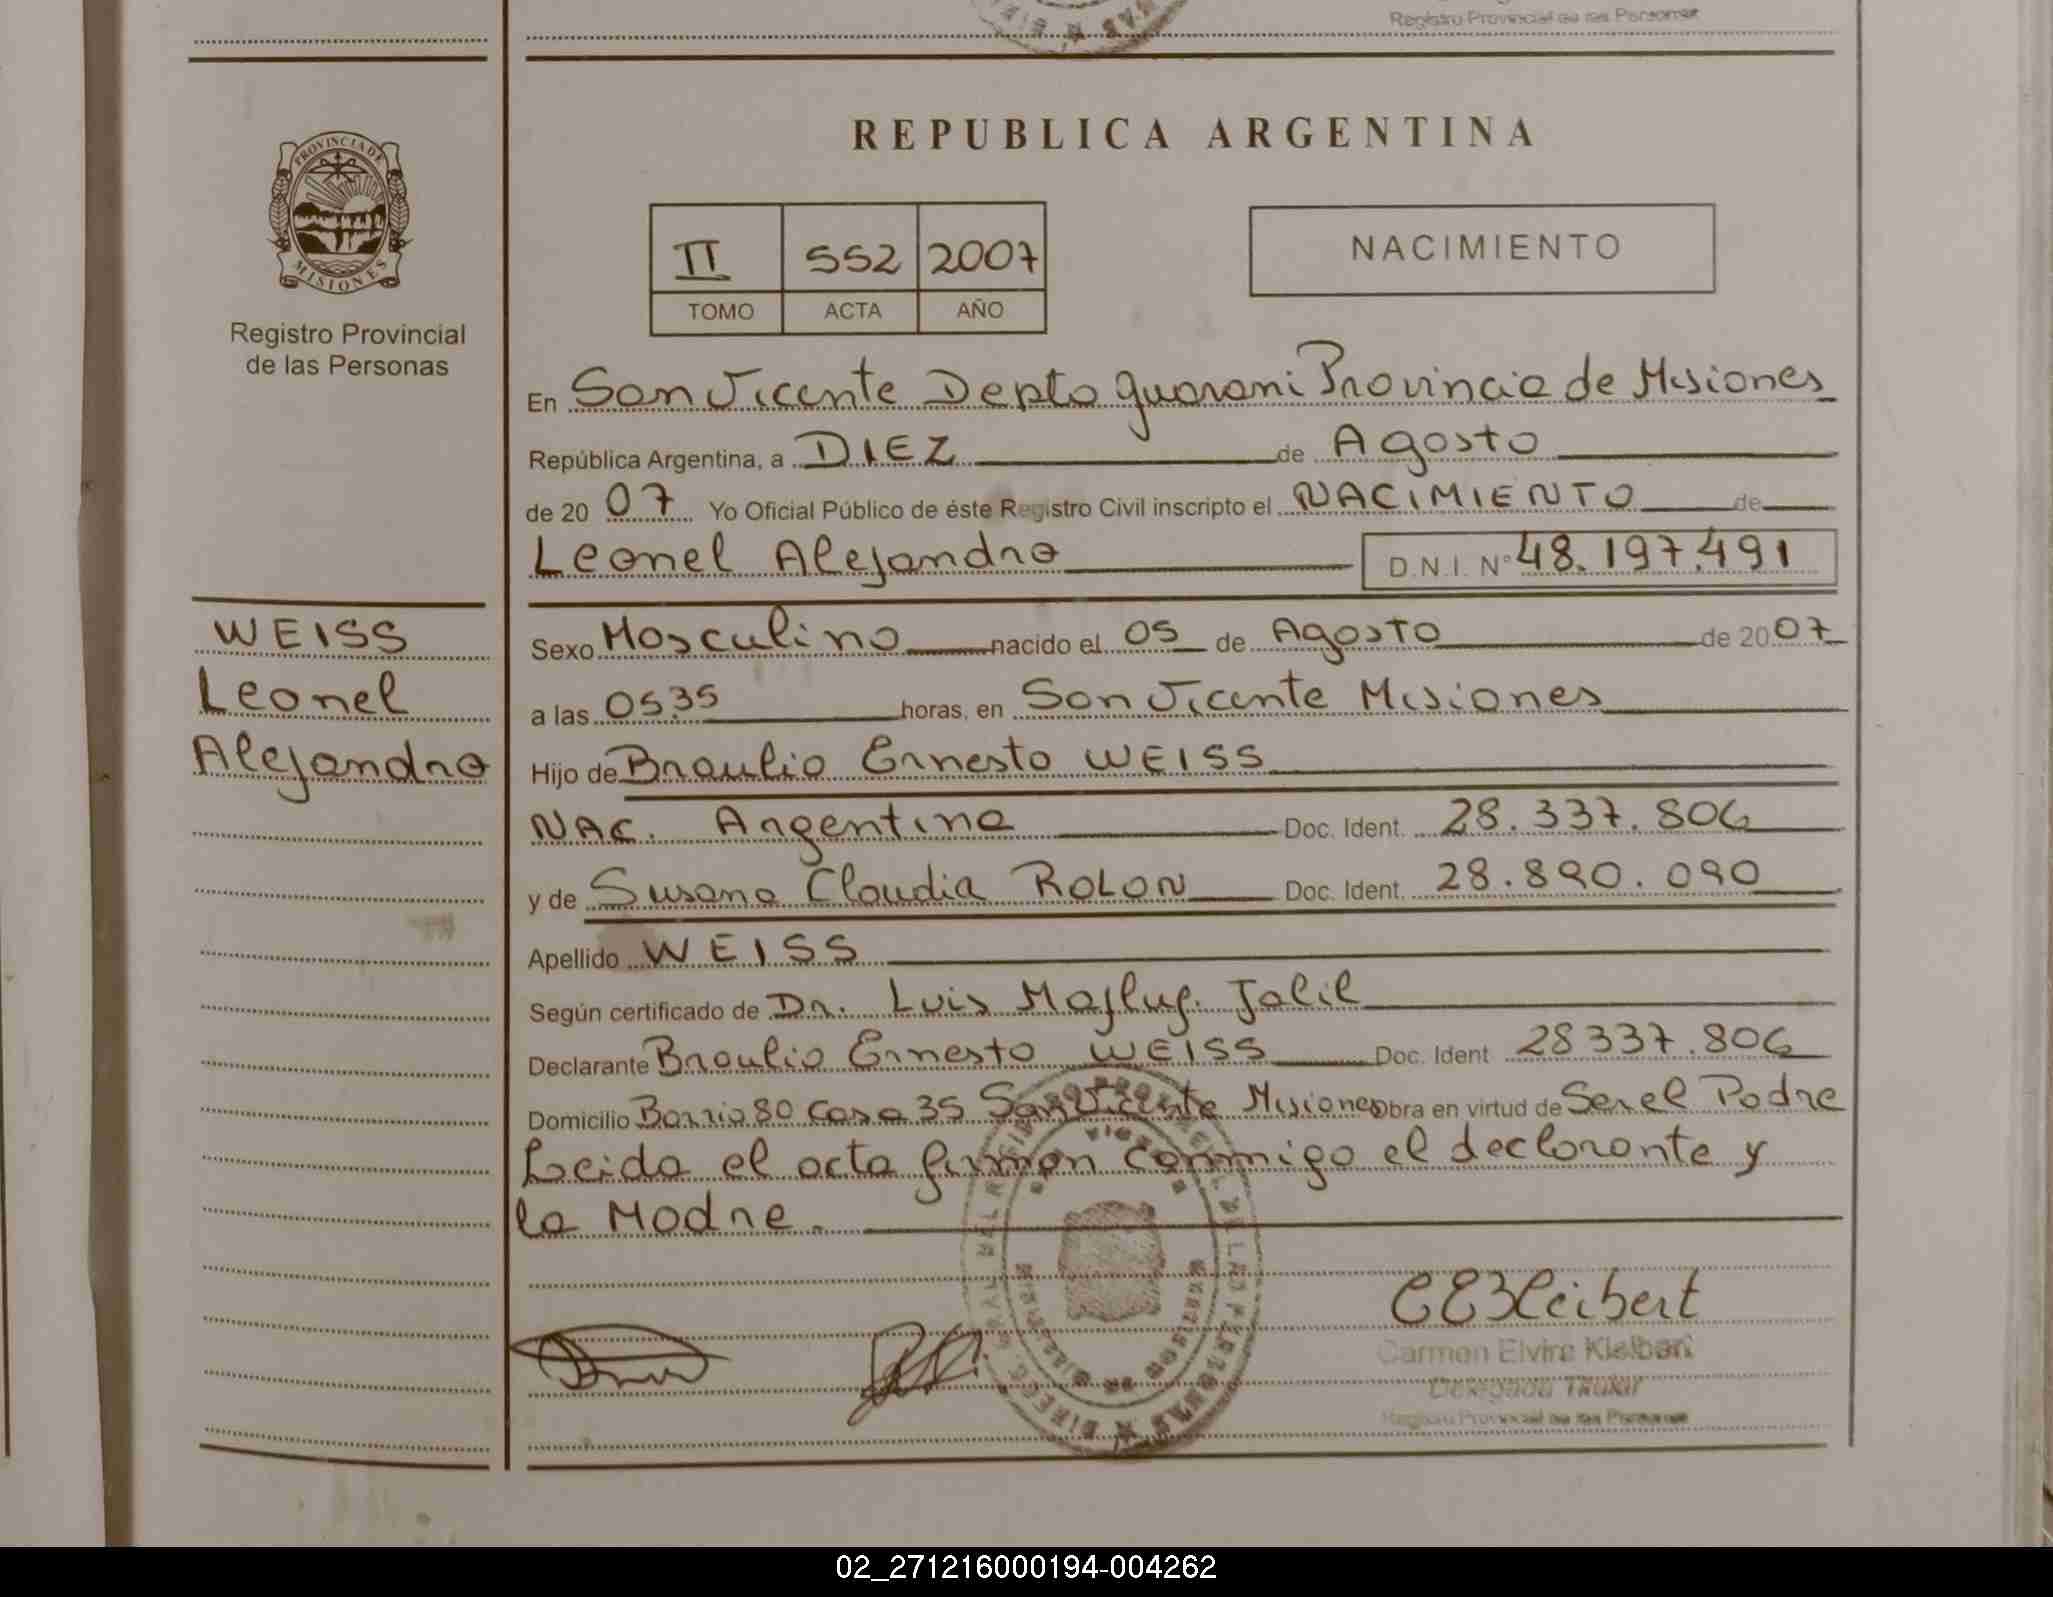 Registro Provincial de las Personas
PROVINCIA DE
MISIONES
Registro Provincial
de las Personas
WEISS
Leonel
Alejandro
REPUBLICA ARGENTINA
II 552 2007
TOMO ACTA AÑO
NACIMIENTO
En San Vicente Depto Guarani Provincia de Misiones
República Argentina, a DIEZ de Agosto
de 20 07 Yo Oficial Público de éste Registro Civil inscripto el NACIMIENTO de
Leonel Alejandro D.N.I. Nº 48.197.491
Sexo Masculino nacido el 05 de Agosto de 20 07
a las 05.35 horas, en San Vicente Misiones
Hijo de Braulio Ernesto WEISS
NAC. Argentina Doc. Ident. 28.337.806
y de Susana Claudia ROLON Doc. Ident. 28.890.090
Apellido WEISS
Según certificado de Dr. Luis Jalil
Declarante Braulio Ernesto WEISS Doc. Ident 28337.806
Domicilio Barrio 80 Casa 35 San Vicente Misiones Obra en virtud de Ser el Padre
Leida el acta firman conmigo el declarante y
la Madre.
CEKleibert
Carmen Elvira Kleibert
Delegada Titular
Registro Provincial de las Personas
02_271216000194-004262